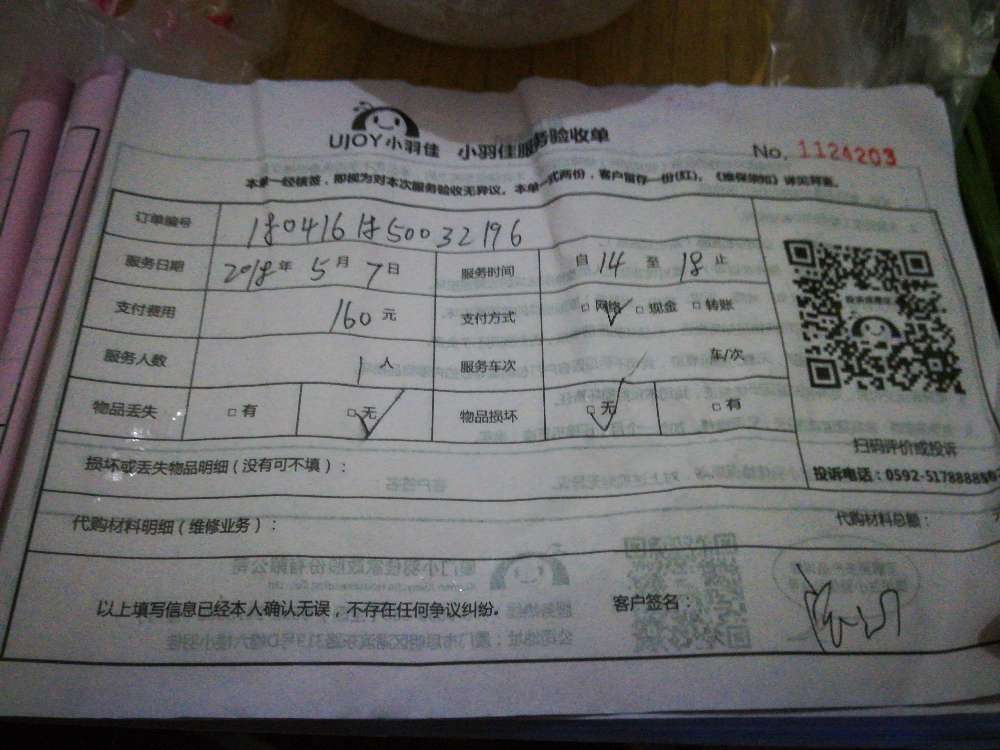 UJOY小羽佳 小羽佳服务验收单
No. 1124203
本单一经核签，即视为对本次服务验收无异议。本单一式两份，客户留存一份(红)。《维保须知》详见背面。
订单编号 1804161850032196
服务日期 2018年5月7日 服务时间 自14至18止
支付费用 160元 支付方式 □网络✓ □现金 □转账
服务人数 1人 服务车次 / 车/次
物品丢失 □有 □无✓ 物品损坏 □无✓ □有
扫码评价或投诉
损坏或丢失物品明细(没有可不填)：
投诉电话：0592-5178888
代购材料明细(维修业务)： 代购材料总额：
以上填写信息已经本人确认无误，不存在任何争议纠纷。 客户签名：